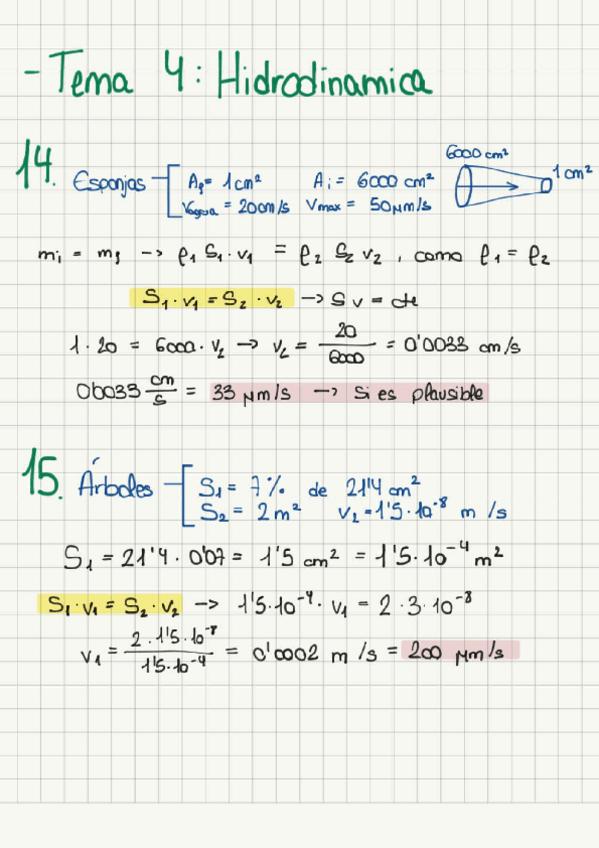 - Tema 4: Hidrodinamica
14. Esponjas
Af = 1cm² Ai = 6000 cm²
Vagua = 20cm/s Vmax = 50μm/s
6000 cm²
1 cm²
mi = mf -> ρ1 S1 · v1 = ρ2 S2 v2, como ρ1 = ρ2
S1 · v1 = S2 · v2 -> S v = cte
1 · 20 = 6000 · v2 -> v2 = 20/6000 = 0'0033 cm/s
0'0033 cm/s = 33 μm/s -> Si es plausible
15. Árboles
S1 = 7% de 21'4 cm²
S2 = 2 m² v2 = 1'5·10⁻⁸ m /s
S1 = 21'4 · 0'07 = 1'5 cm² = 1'5·10⁻⁴ m²
S1 · v1 = S2 · v2 -> 1'5·10⁻⁴ · v1 = 2 · 3 · 10⁻⁸
v1 = 2 · 1'5·10⁻⁸/1'5·10⁻⁴ = 0'0002 m /s = 200 μm/s